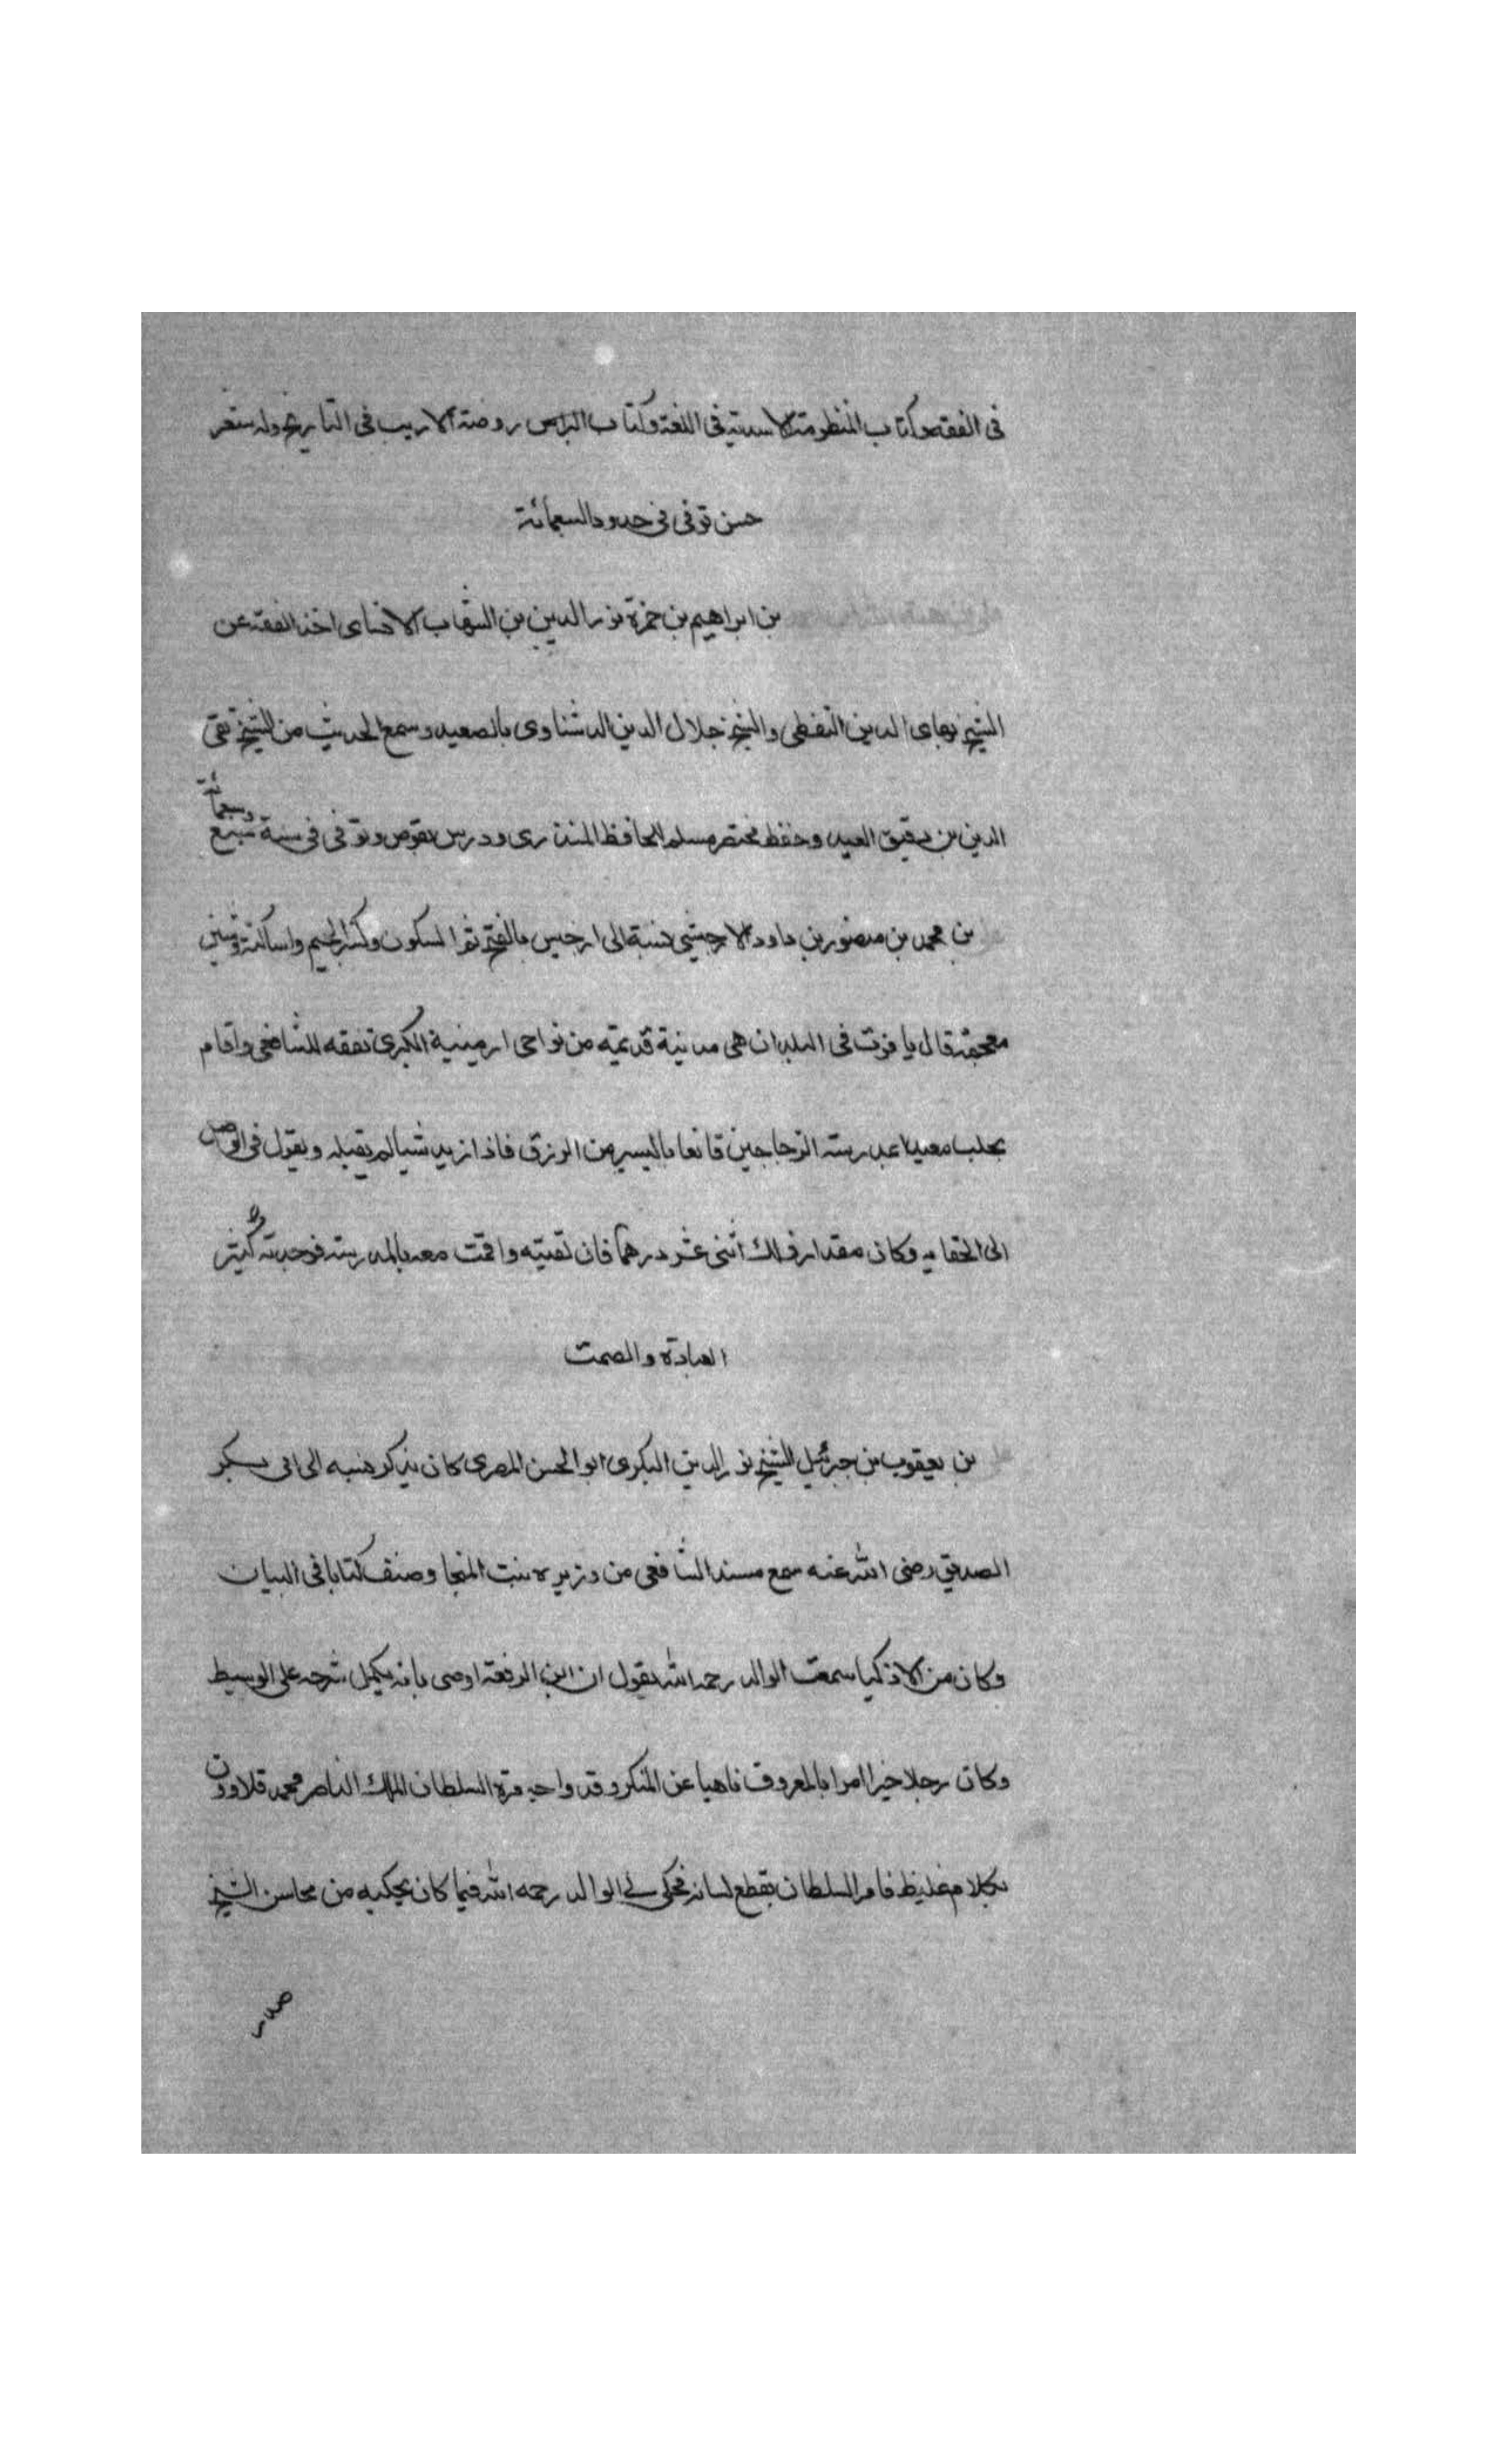 فى الفقه وكتاب المنظومة الاسدية فى اللغة وكتاب الراس روضة الاريب فى التاريخ وله شعر
حسن توفى فى حدود السبعمائة
بن ابراهيم بن حمزة نور الدين بن الشهاب الاسناى اخذ الفقه عن
الشيخ بهاى الدين القفطى والشيخ جلال الدين الدشناوى بالصعيد وسمع الحديث من الشيخ تقى
الدين بن دقيق العيد وحفظ مختصر مسلم للحافظ المنذرى ودرس بقوص وتوفى فى سنة سبع
وسبعمائة
بن محمد بن منصور بن داود الارجيشى نسبة الى ارجيش بالفتح ثم السكون وكسر الجيم واسا كنة وشين
معجمة قال ياقوت فى البلدان هى مدينة قديمة من نواحى ارمينية الكبرى تفقه للشافعى واقام
بحلب معيدا بمدرسة الزجاجين قانعا باليسير من الرزق فاذا زيد شيا لم يقبله ويقول فى الواصل
الى كفايه وكان مقدار ذلك اثنى عشر درهما فان لقيته واقمت معه بالمدرسة فوجدته كثير
العبادة والصمت
بن يعقوب بن جبرئيل الشيخ نور الدين البكرى ابو الحسن المصرى كان يذكر نسبه الى ابى بكر
الصديق رضى الله عنه سمع مسند الشافعى من وزيره بنت المنجا وصنف كتابا فى البيان
وكان من الاذكيا سمعت الوالد رحمه الله يقول ان ابن الرفعة اوصى بانه يكمل شرحه على الوسيط
وكان رجلا خيرا امرا بالمعروف ناهيا عن المنكر وقد واجه مرة السلطان الملك الناصر محمد قلاوون
بكلام غليظ فامر السلطان بقطع لسانه فحكى لى الوالد رحمه الله فيما كان يحكيه من محاسن الشيخ
صدر